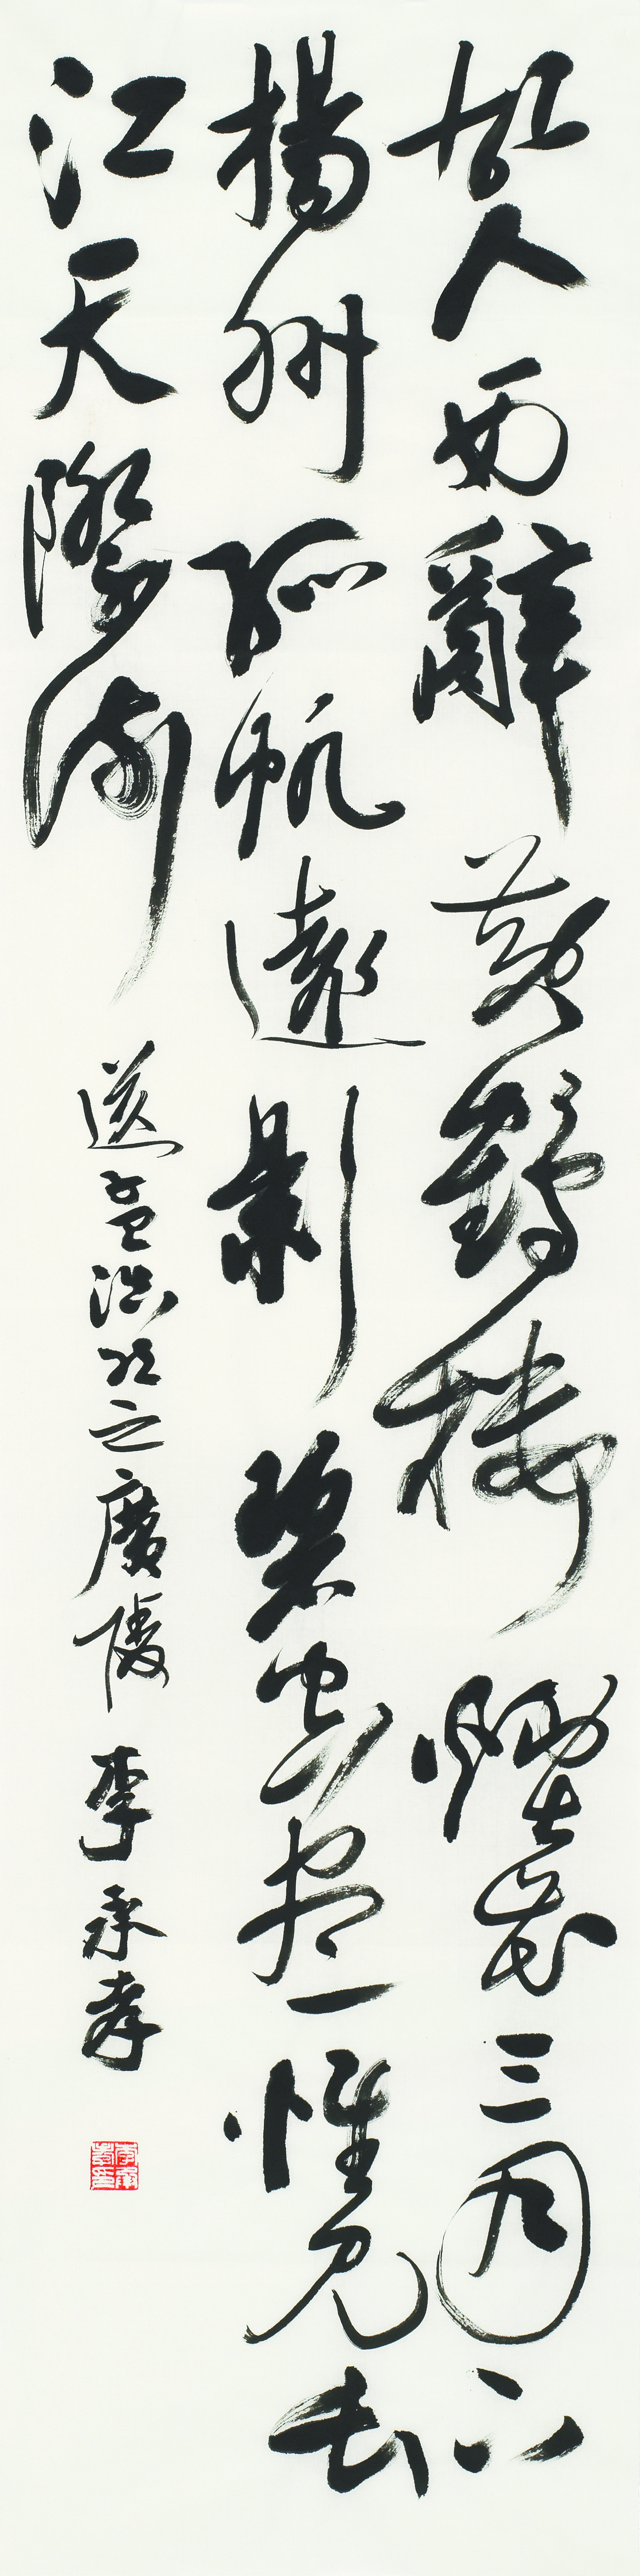 故人西辭黃鶴樓煙花三月下
揚州孤帆遠影碧空盡惟見長
江天際流
送孟浩然之廣陵
李承孝